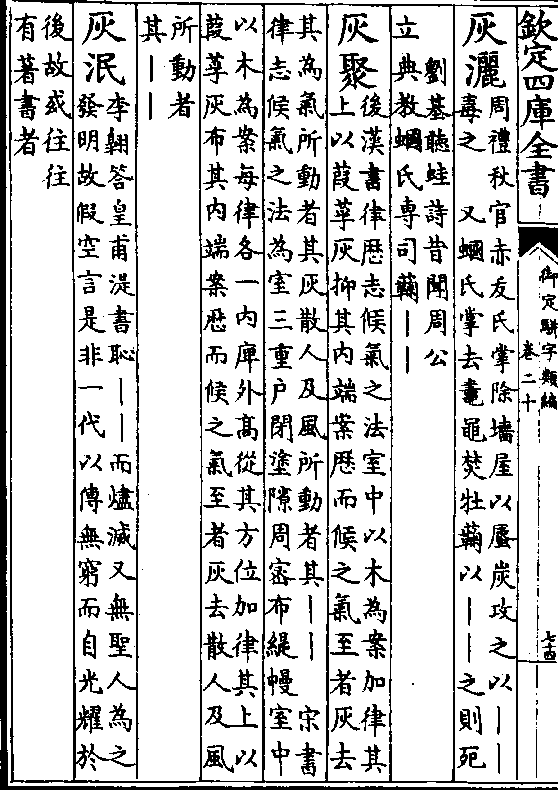 欽定四庫全書
灰灑周禮秋官赤友氏掌除墻屋以蜃炭攻之以丨丨
毒之　又蟈氏掌去鼃黽焚牡蘜以丨丨之則死
劉基聽蛙詩昔聞周公
立典教蟈氏專司蘜丨丨
灰聚後漢書律歴志候氣之法室中以木為案加律其
上以葭莩灰抑其内端案歴而候之氣至者灰去
其為氣所動者其灰散人及風所動者其丨丨　宋書
律志候氣之法為室三重户閉塗隙周宻布緹幔室中
以木為案每律各一内庳外髙從其方位加律其上以
葭莩灰布其内端案厯而候之氣至者灰去散人及風
所動者
其丨丨
灰泯李翺答皇甫湜書恥丨丨而燼滅又無聖人為之
發明故假空言是非一代以傳無窮而自光耀於
後故或往往
有著書者
御定駢字類編
卷二十
七十四